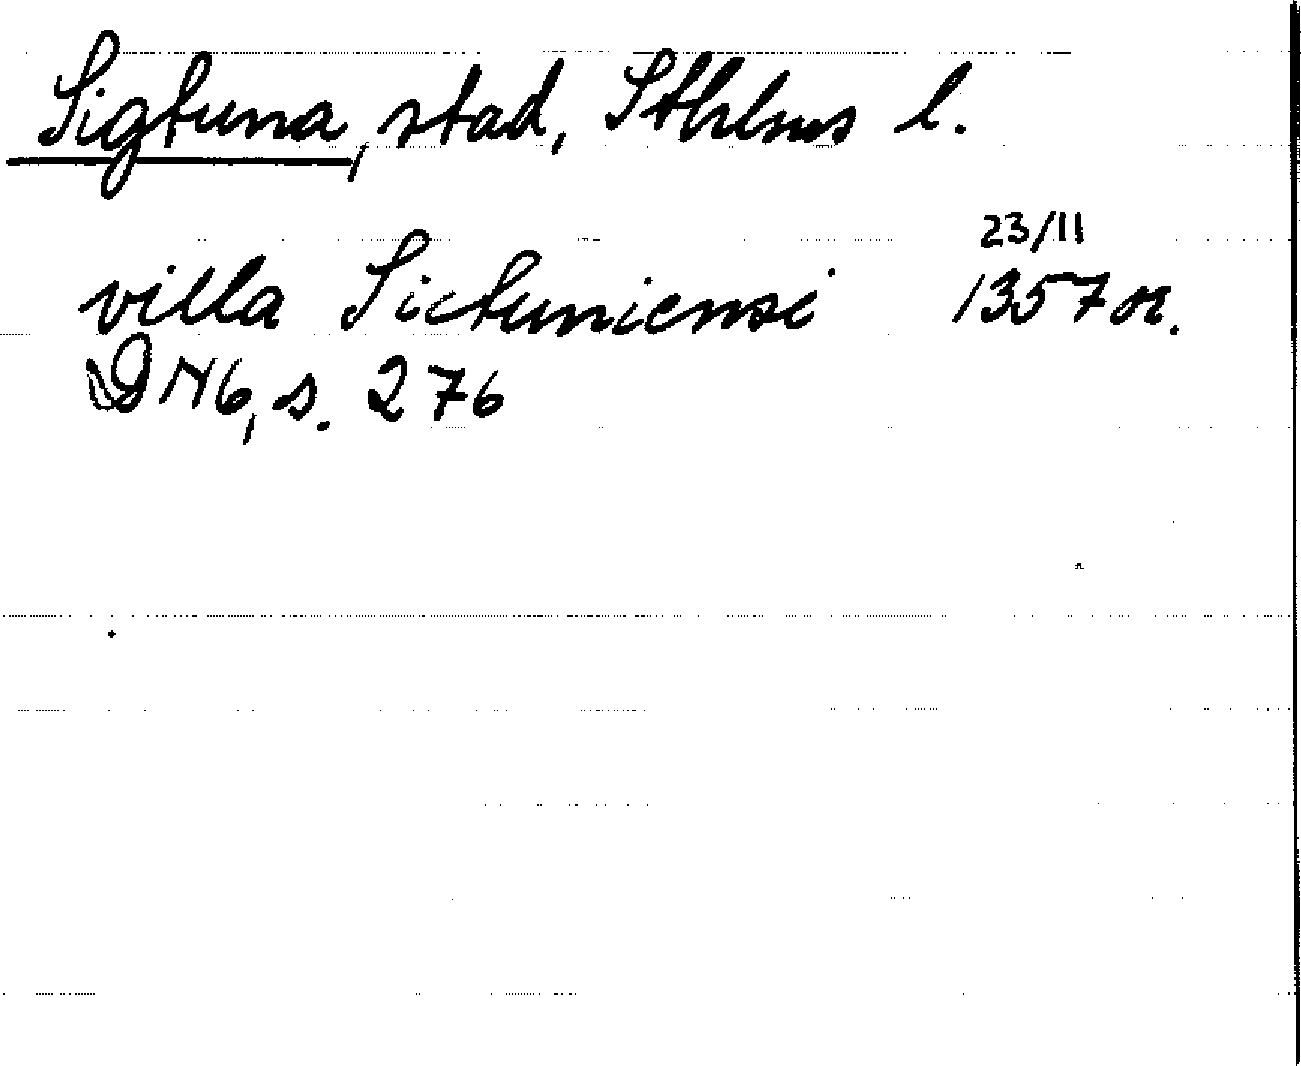 Sigtuna, stad, Sthlms l.
23/11
villa Sictuniensi 1357 or.
DN6, s. 276